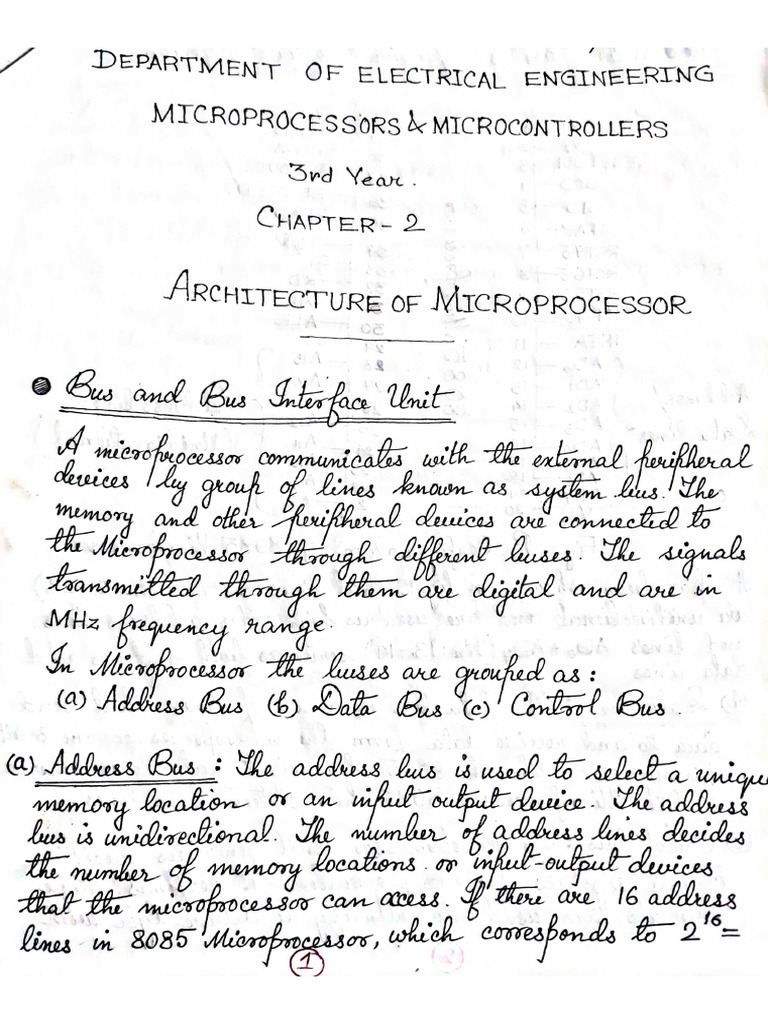 DEPARTMENT OF ELECTRICAL ENGINEERING
MICROPROCESSORS & MICROCONTROLLERS
3rd Year.
CHAPTER - 2
ARCHITECTURE OF MICROPROCESSOR
Bus and Bus Interface Unit
A microprocessor communicates with the external peripheral
devices by group of lines known as system bus. The
memory and other peripheral devices are connected to
the Microprocessor through different buses. The signals
transmitted through them are digital and are in
MHz frequency range.
In Microprocessor the buses are grouped as :
(a) Address Bus (b) Data Bus (c) Control Bus.
(a) Address Bus : The address bus is used to select a unique
memory location or an input output device. The address
bus is unidirectional. The number of address lines decides
the number of memory locations or input-output devices
that the microprocessor can acess. If there are 16 address
lines in 8085 Microprocessor, which corresponds to 2^16 =
1